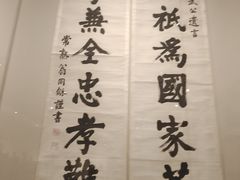 公遺言
祇為國家
兼全忠孝難
常熟翁同龢謹書